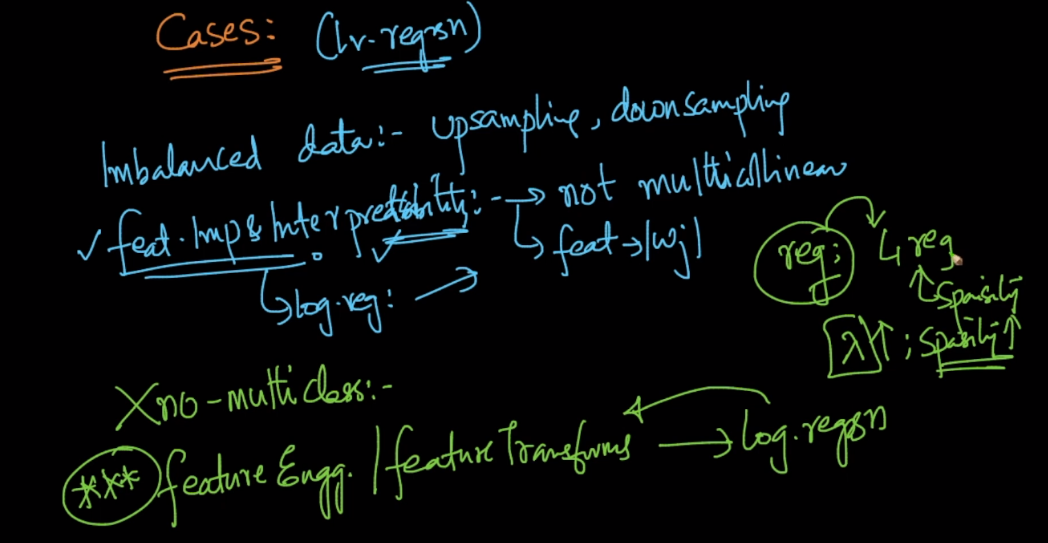 Cases: (lr-regrsn)
Imbalanced data:- upsampling, downsampling
✓ feat. Imp & Interpretability:- → not multicollinear
↳ feat → |wj|
↳ log.reg: →
reg: L1 reg
↑ Sparsity
λ↑ ; Sparsity↑
X no-multiclass:-
*** feature Engg. / feature Transforms → log.regrsn